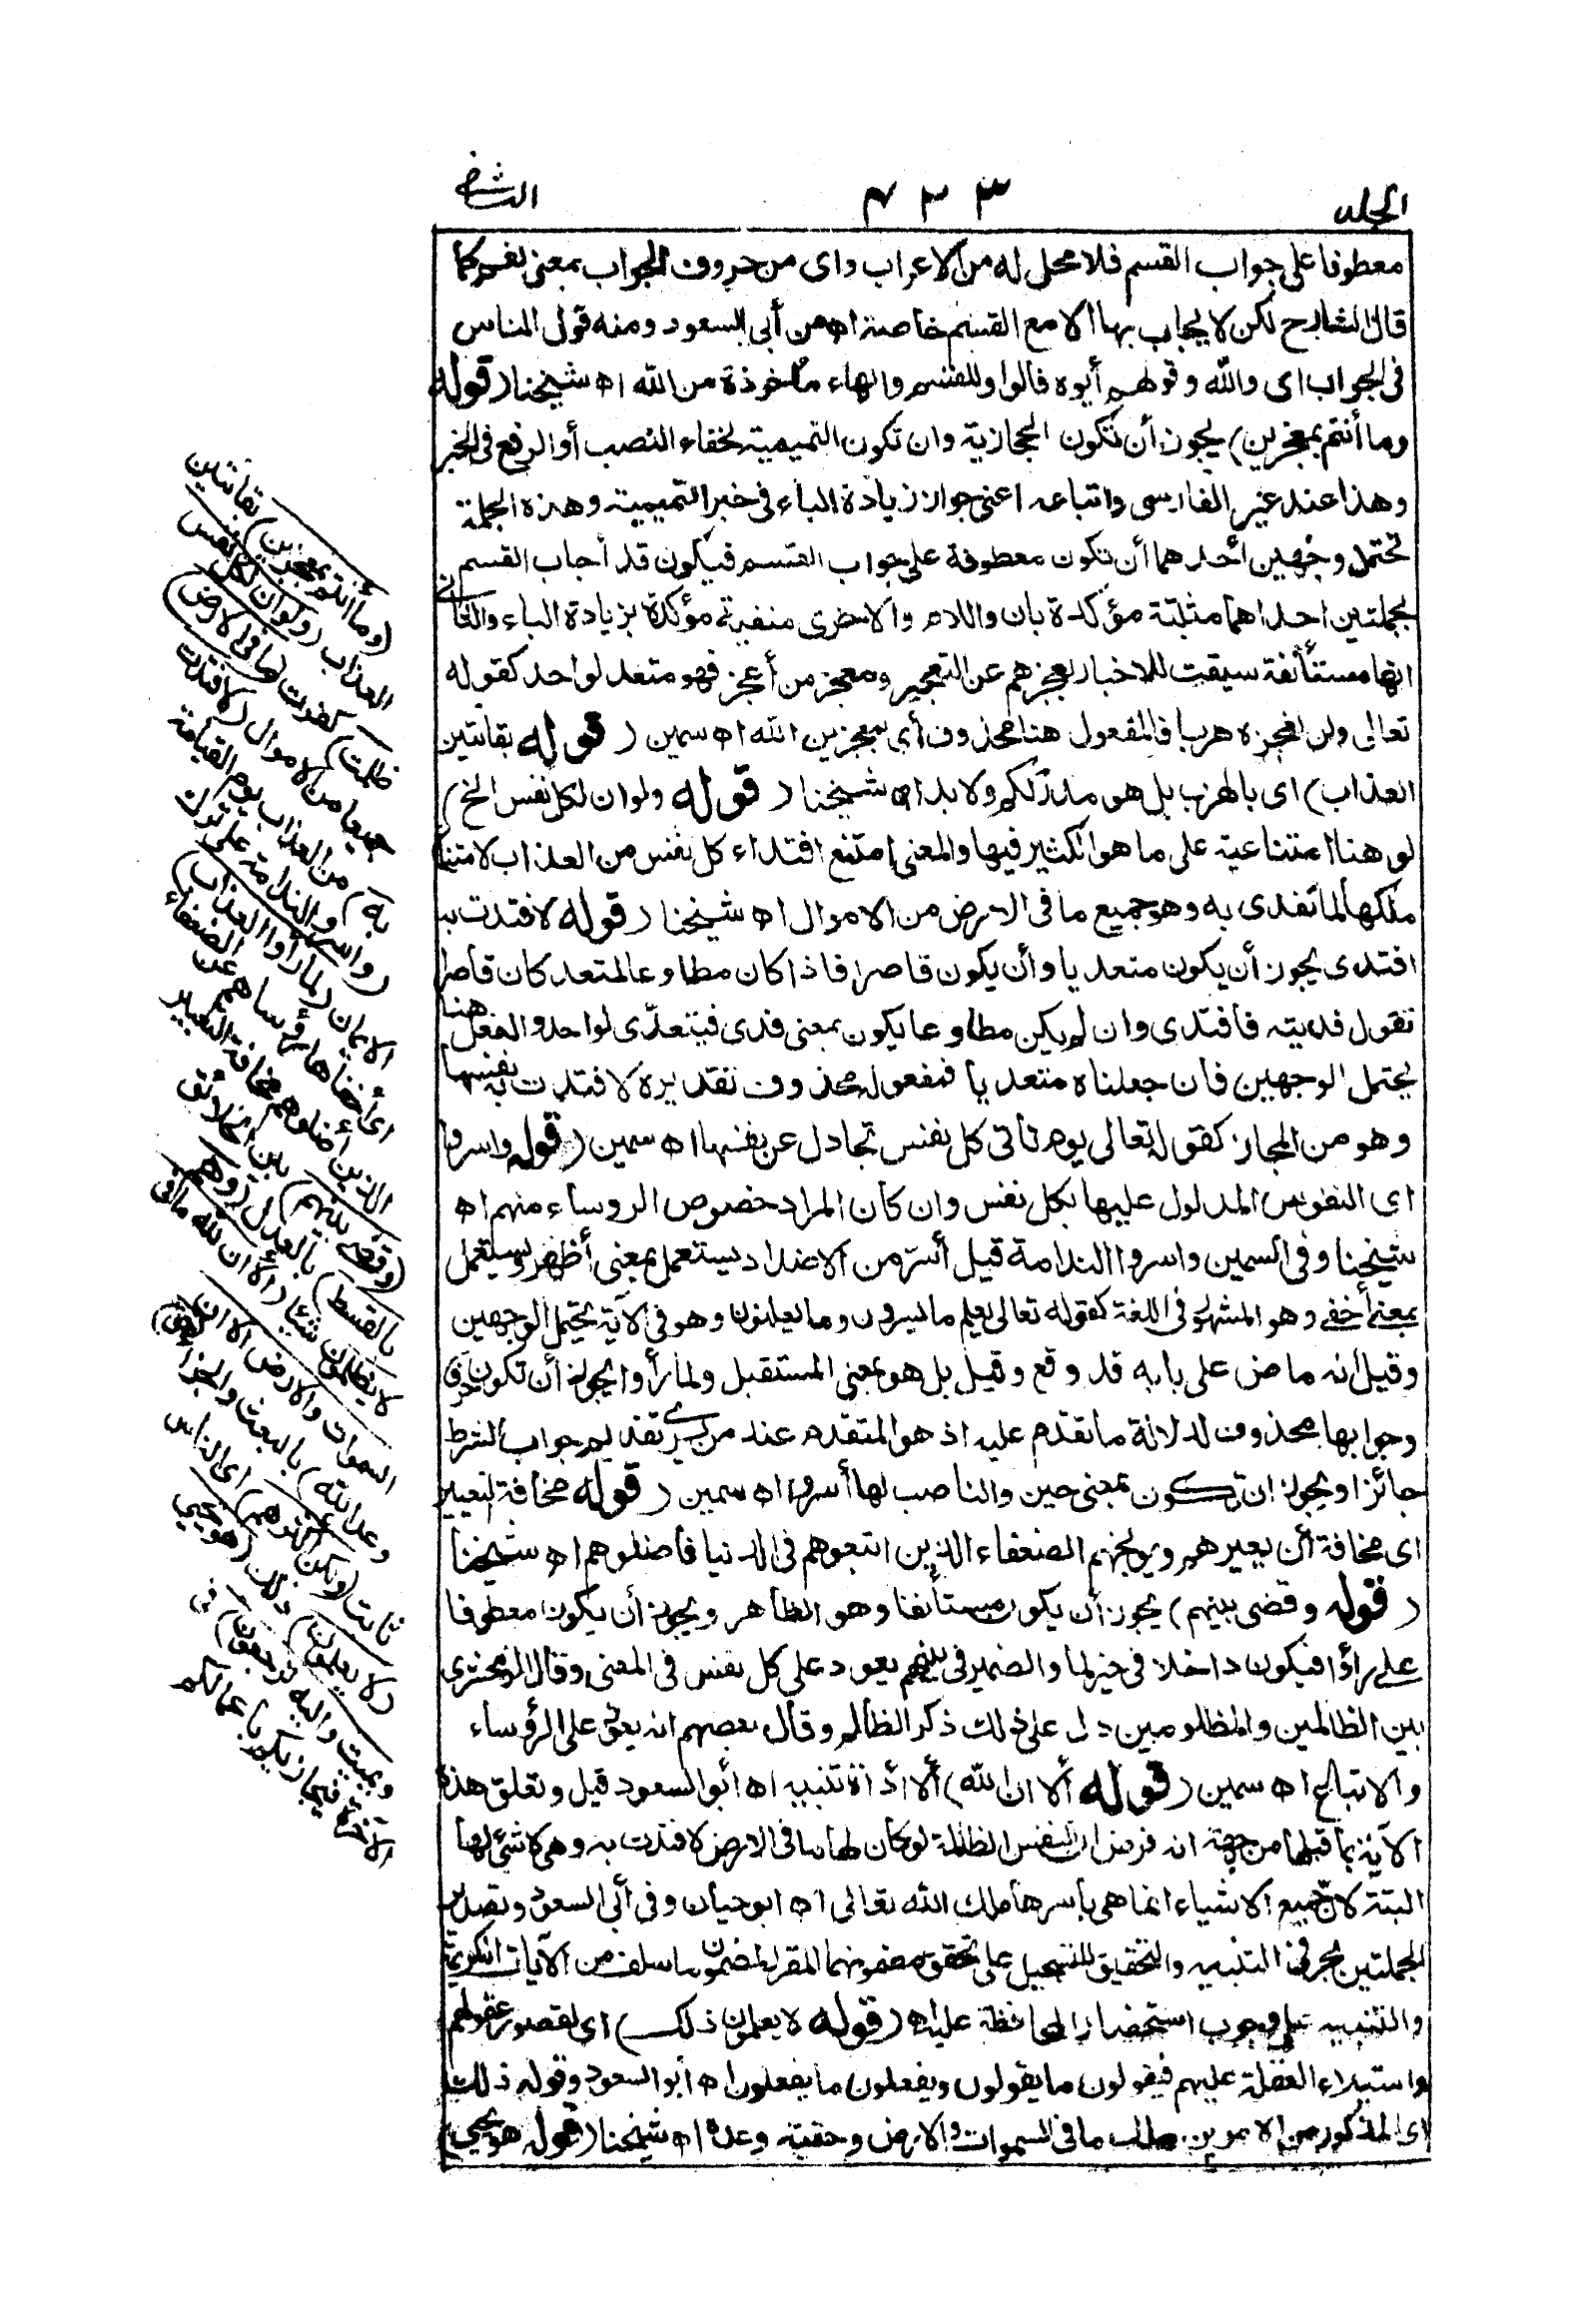 الجلد ٤٢٣ الثانى
معطوفا على جواب القسم فلا محل له من الاعراب واى من حروف الجواب بمعنى نعم كما
قال الشارح لكن لا يجاب بها الا مع القسم خاصة اه من أبى السعود ومنه قول الناس
فى الجواب اى والله وقولهم أيوه فالوا وللقسم والهاء مأخوذة من الله اه شيخنا (قوله
وما أنتم بمعجزين) يجوز أن تكون الحجازية وان تكون التميمية لخفاء النصب أو الرفع فى الخبر
وهذا عند غير الفارسى واتباعه اعنى جواز زيادة الباء فى خبر التميمية وهذه الجملة
تحتمل وجهين أحدهما أن تكون معطوفة على جواب القسم فيكون قد أجاب القسم
بجملتين احداهما مثبتة مؤكدة بان واللام والاخرى منفية مؤكدة بزيادة الباء والثانى
انها مستأنفة سيقت للاخبار بعجزهم عن التعجيز ومعجز من أعجز فهو متعد لواحد كقوله
تعالى ولن نعجزه هربا فالمفعول هنا محذوف أى بمعجزين الله اه سمين (قوله بفائتين
العذاب) اى بالهرب بل هو مدرككم ولا بد اه شيخنا (قوله ولو ان لكل نفس الخ)
لو هنا امتناعية على ما هو الكثير فيها والمعنى امتنع افتداء كل نفس من العذاب لامتناع
ملكها لما تفدى به وهو جميع ما فى الارض من الاموال اه شيخنا (قوله لافتدت به
افتدى يجوز أن يكون متعديا وأن يكون قاصرا فاذا كان مطاوعا لمتعد كان قاصرا
تقول فديته فافتدى وان لم يكن مطاوعا يكون بمعنى فدى فيتعدّى لواحد والفعل هنا
يحتمل الوجهين فان جعلناه متعديا فمفعوله محذوف تقديره لافتدت به نفسها
وهو من المجاز كقوله تعالى يوم تأتى كل نفس تجادل عن نفسها اه سمين (قوله واسروا
اى النفوس المدلول عليها بكل نفس وان كان المراد خصوص الروساء منهم اه
شيخنا وفى السمين واسروا الندامة قيل أسرّ من الاضداد يستعمل بمعنى أظهر ويستعمل
بمعنى أخفى وهو المشهور فى اللغة كقوله تعالى يعلم ما يسرون وما يعلنون وهو فى الآية يحتمل الوجهين
وقيل أنه ماض على بابه قد وقع وقيل بل هو بمعنى المستقبل ولما رأوا يجوز أن تكون حرف
وجوابها محذوف لدلالة ما تقدم عليه اذ هو المتقدم عند من يرى تقديم جواب الشرط
جائزا ويجوز ان تكون بمعنى حين والناصب لها أسروا اه سمين (قوله مخافة التعيير
اى مخافة أن يعيرهم ويوبخهم الضعفاء الذين اتبعوهم فى الدنيا فاضلوهم اه شيخنا
(قوله وقضى بينهم) يجوز أن يكون مستأنفا وهو الظاهر ويجوز أن يكون معطوفا
على رأوا فيكون داخلا فى حيز لما والضمير فى بينهم يعود على كل نفس فى المعنى وقال الزمخشرى
بين الظالمين والمظلومين دل على ذلك ذكر الظالم وقال بعضهم انه يعود على الرؤساء
والاتباع اه سمين (قوله ألا ان لله) ألا أداة تنبيه اه أبو السعود قيل وتعلق هذه
الآية بما قبلها من جهة انه فرض ان النفس الظالمة لو كان لها ما فى الارض لافتدت به وهى لا شئ لها
البتة لان جميع الاشياء انما هى بأسرها ملك الله تعالى اه ابو حيان وفى أبى السعود وتصدير
الجملتين بحرفى التنبيه والتحقيق للتسجيل على تحقق مضمونهما المقرر لمضمون ما سلف من الآيات الكريمة
والتنبيه على وجوب استحضار المحافظة عليه اه (قوله لا يعلمون ذلك) اى لقصور عقولهم
واستيلاء الغفلة عليهم فيقولون ما يقولون ويفعلون ما يفعلون اه أبو السعود وقوله ذلك
اى المذكور من الامرين ملك ما فى السموات والارض وحقية وعده اه شيخنا (قوله هو يحيى)
(وما أنتم بمعجزين) بفائتين
العذاب (ولو ان لكل نفس
ظلمت) كفرت (ما فى الارض)
جميعا من الاموال (لافتدت
به) من العذاب يوم القيامة
(واسروا الندامة) على ترك
الايمان (لما رأوا العذاب)
اى أخفاها رؤساهم عن الضعفاء
الذين أضلوهم مخافة التعيير
(وقضى بينهم) بين الخلائق
بالقسط) بالعدل (وهم
لا يظلمون) شيئا (ألا ان لله ما فى
السموات والارض الا ان
وعد الله) بالبعث والجزاء (حق)
ثابت (ولكن اكثرهم) اى الناس
(لا يعلمون) ذلك (هو يحيى
ويميت واليه ترجعون) فى
الآخرة فيجازيكم باعمالكم